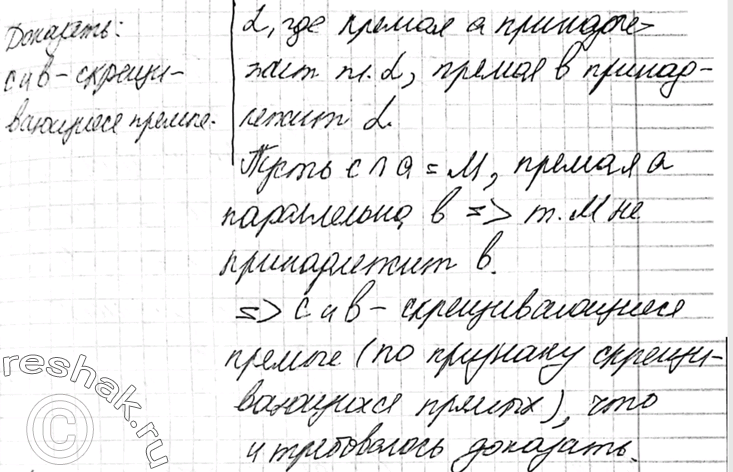 Доказать:
с и в - скрещи-
вающиеся прямые.
α, где прямая а принадле-
жит пл. α, прямая в принад-
лежит α.
Пусть с ∩ а = М, прямая а
параллельна в => т. М не
принадлежит в.
=> с и в - скрещивающиеся
прямые (по признаку скрещи-
вающихся прямых), что
и требовалось доказать.
©reshak.ru